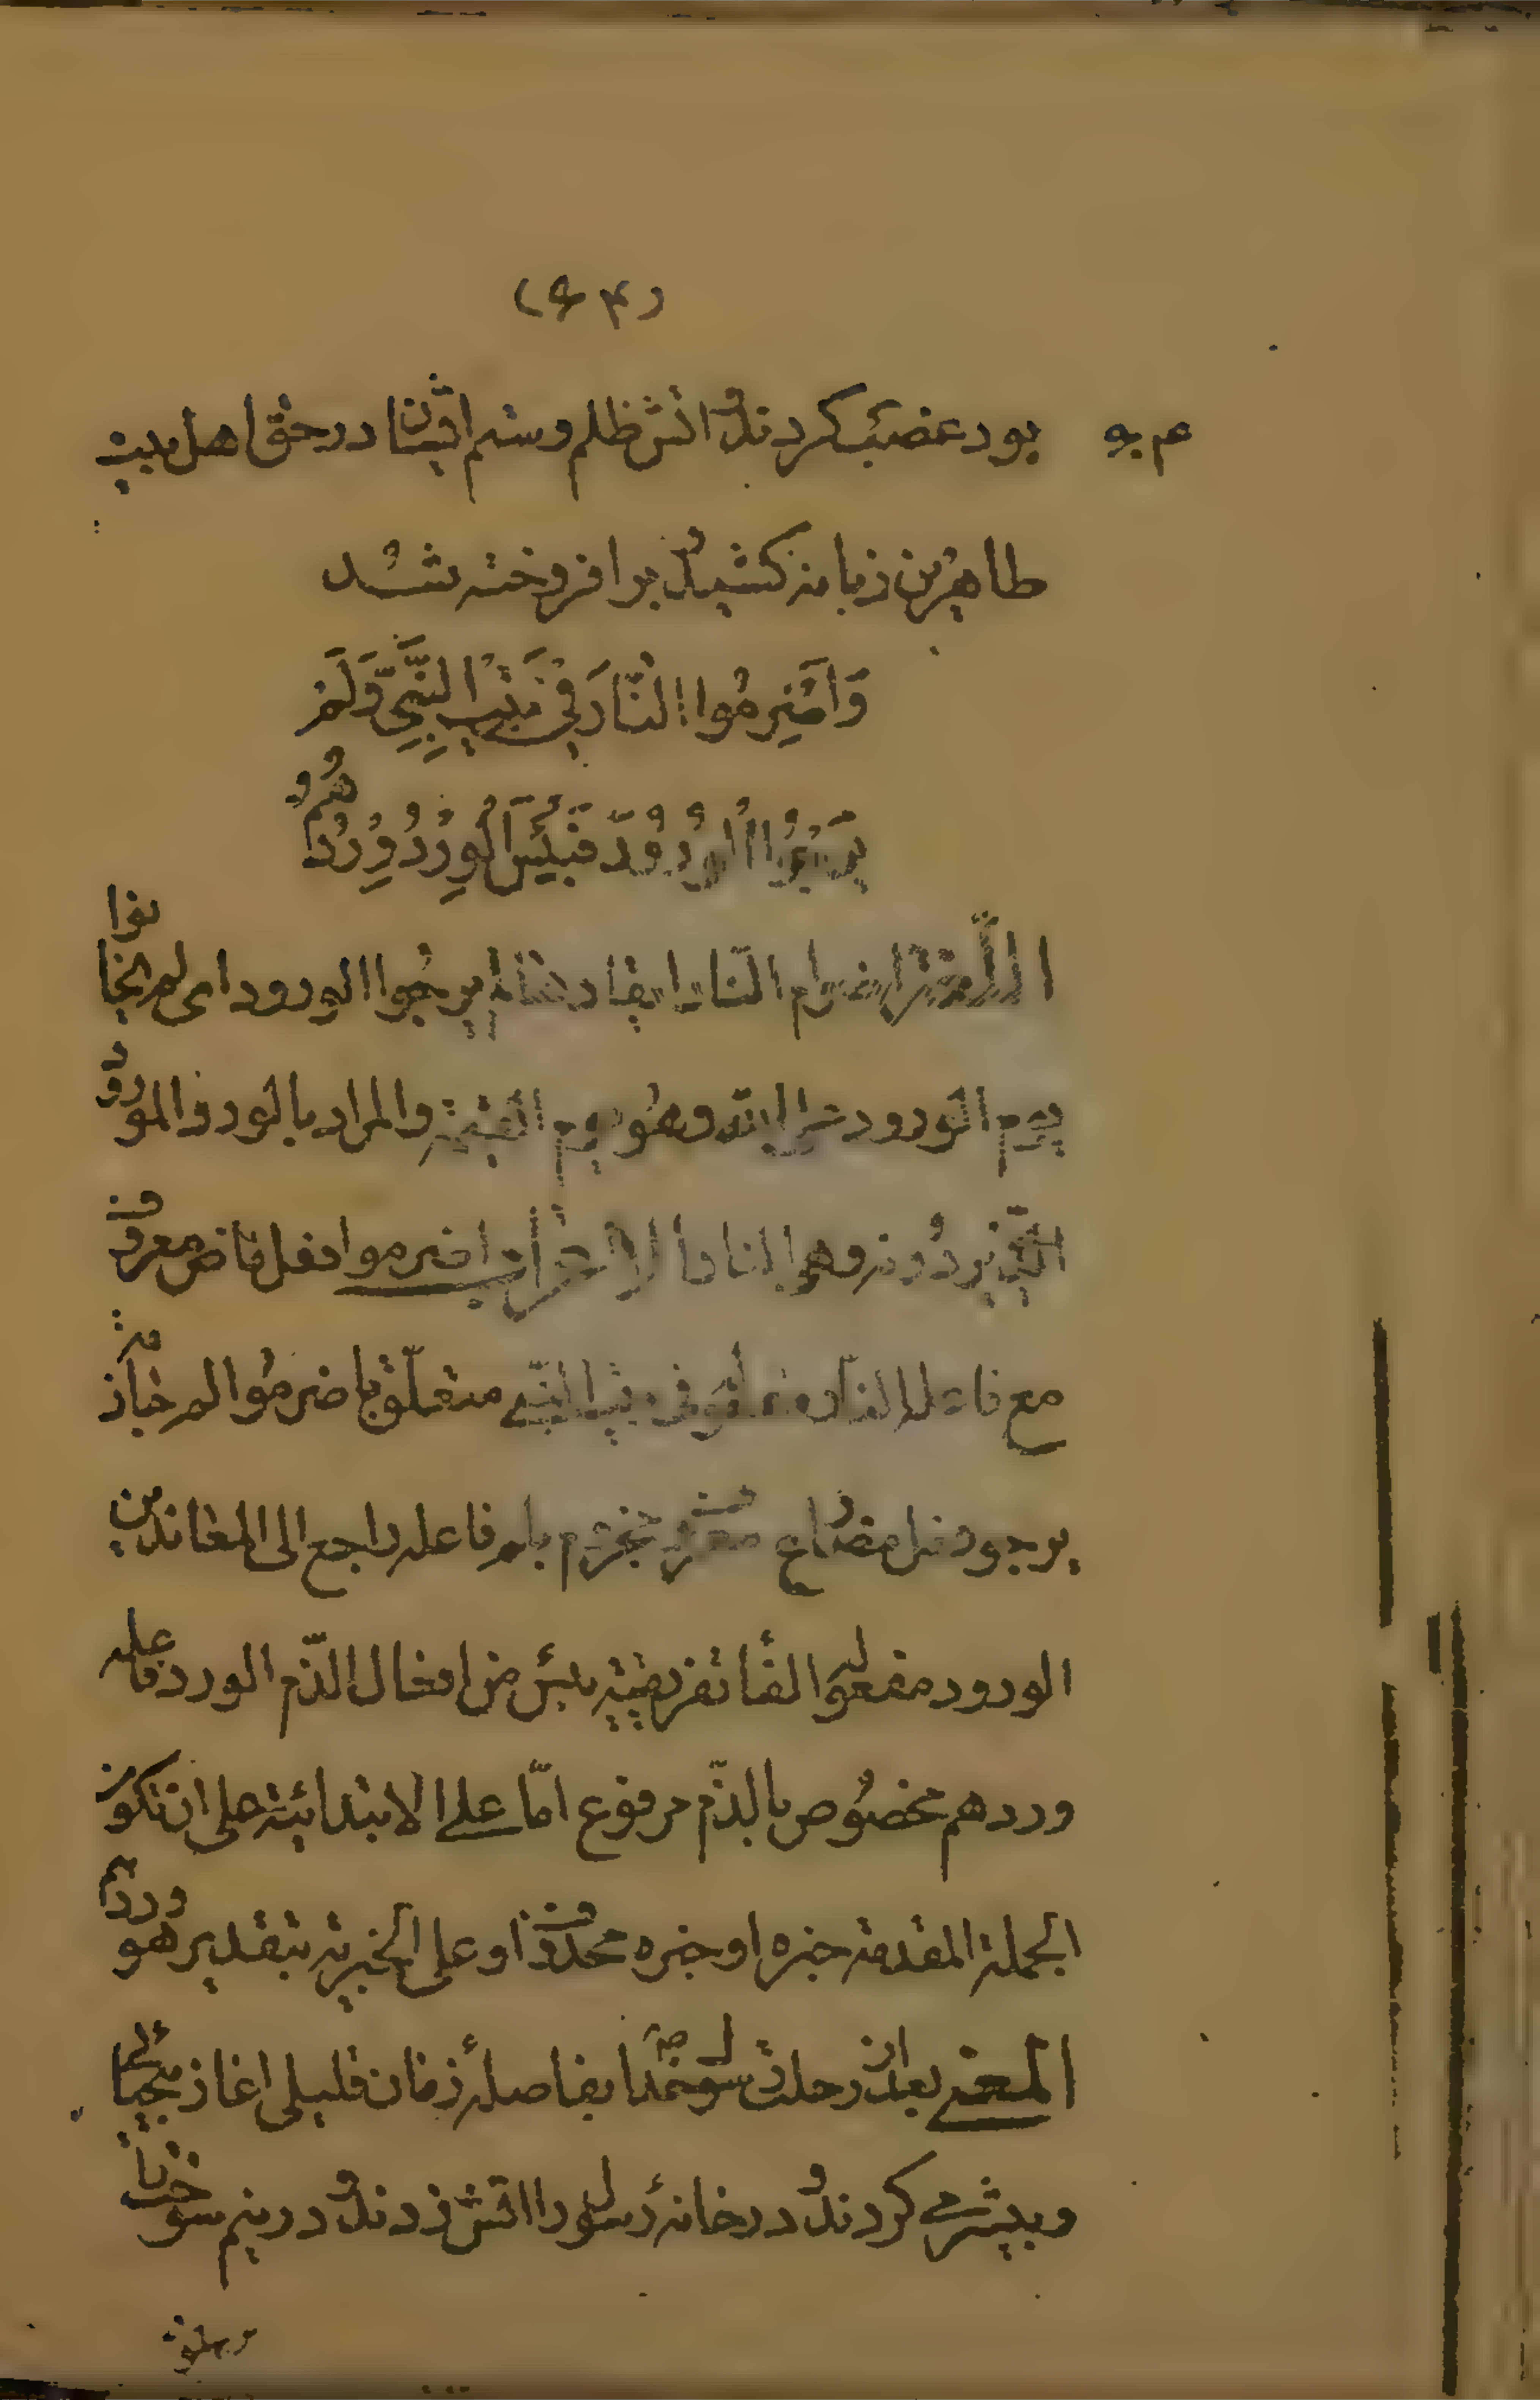 (۹۴)
بود غضب کردند و اتش ظلم و ستم ایشان در حق اهل بیت
طاهرین زبانه کشید و برافروخته شد
وَاَضْرِمُوا النَّارَ فِی بَیْتِ النَّبِیِّ وَلَمْ
یَرْجُوا الْوُرُودَ فَبِئْسَ الْوِرْدُ وِرْدُهُمُ
اللغة اضرام النار ایقادها لم یرجوا الورود ای لم یخافوا
یوم الورود علی الله وهو یوم القیمة والمراد بالورد المورود
الذی یردونه وهو النار الاعراب اضرموا فعل ماض معروف
مع فاعله النار مفعوله فی بیت النبی متعلق باضرموا لم جازمة
یرجو فعل مضارع معروف مجزوم بلم فاعله راجع الی المعاندین
الورود مفعوله الفا تفریعیة بئس من افعال الذّم الورد فاعله
وردهم مخصوص بالذّم مرفوع امّا علی الابتدائیة علی ان تکون
الجملة المقدمة خبره او خبره محذوف او علی الخبریة بتقدیر هو وردهم
المعنی بعد از رحلت رسول خدا ص بفاصلۀ زمان قلیلی اغاز بیحیائی
وبیشرمی کردند و در خانۀ رسول را اتش زدند و در نیم سوخته